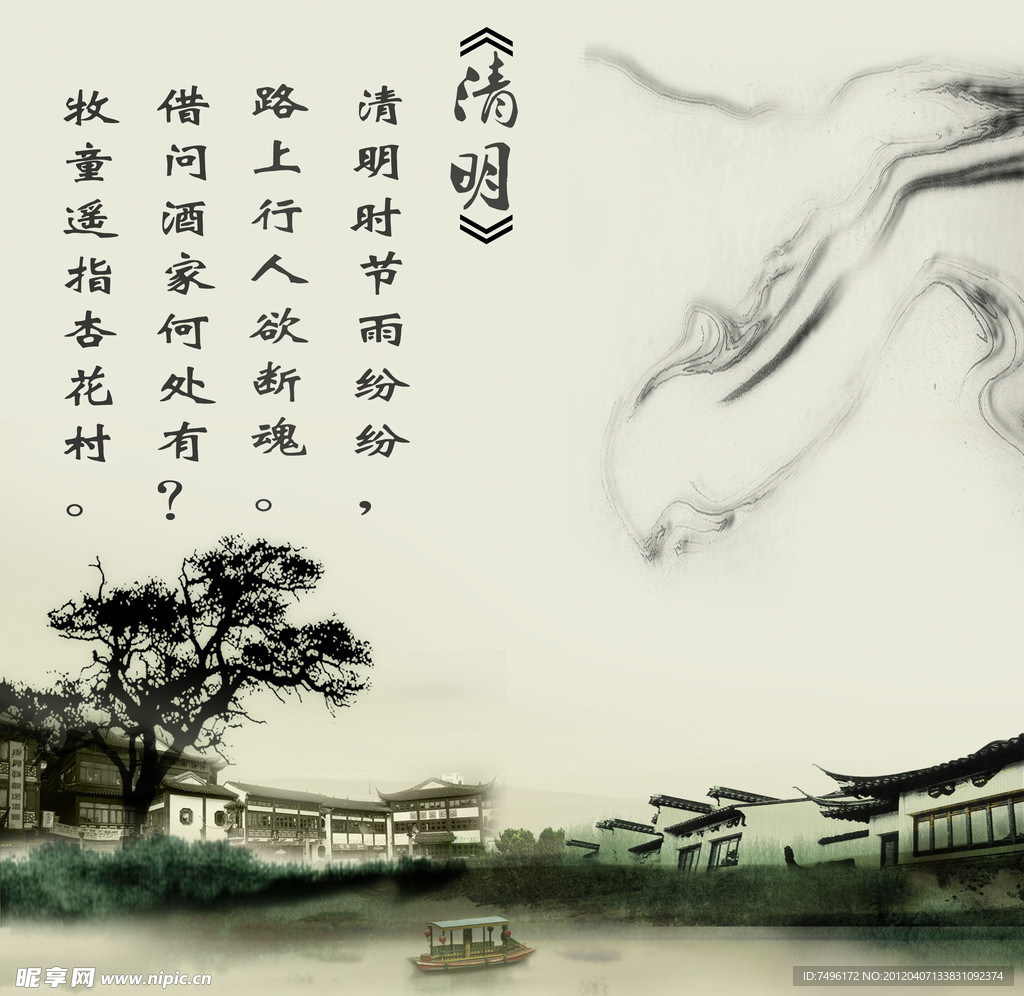 《清明》
清明时节雨纷纷，
路上行人欲断魂。
借问酒家何处有？
牧童遥指杏花村。
昵享网 www.nipic.cn
ID:7496172 NO:20120407133831092374